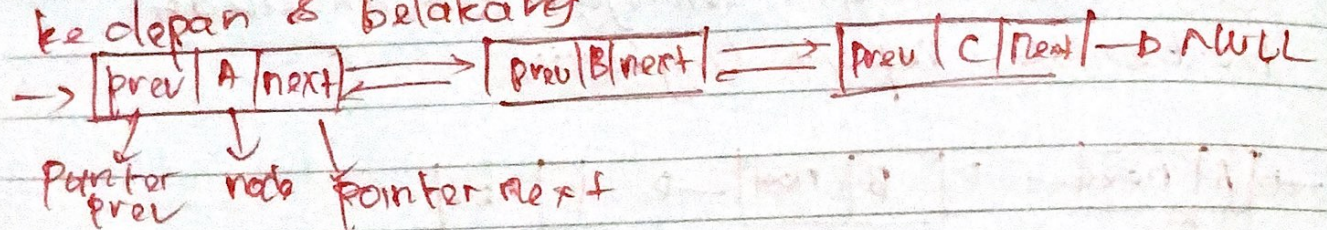 ke depan & belakang
→ |prev|A|next| ⇄ |prev|B|next| ⇄ |prev|C|next|→ NULL
Pointer node pointer next
prev